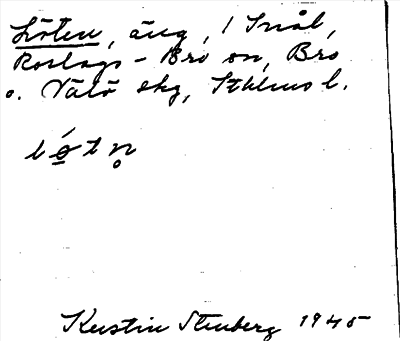 Löten, äng, / Snål,
Roslags-Bro sn, Bro
o. Vätö skg, Sthlms l.
lǿtn̥
Kerstin Stenberg 1945